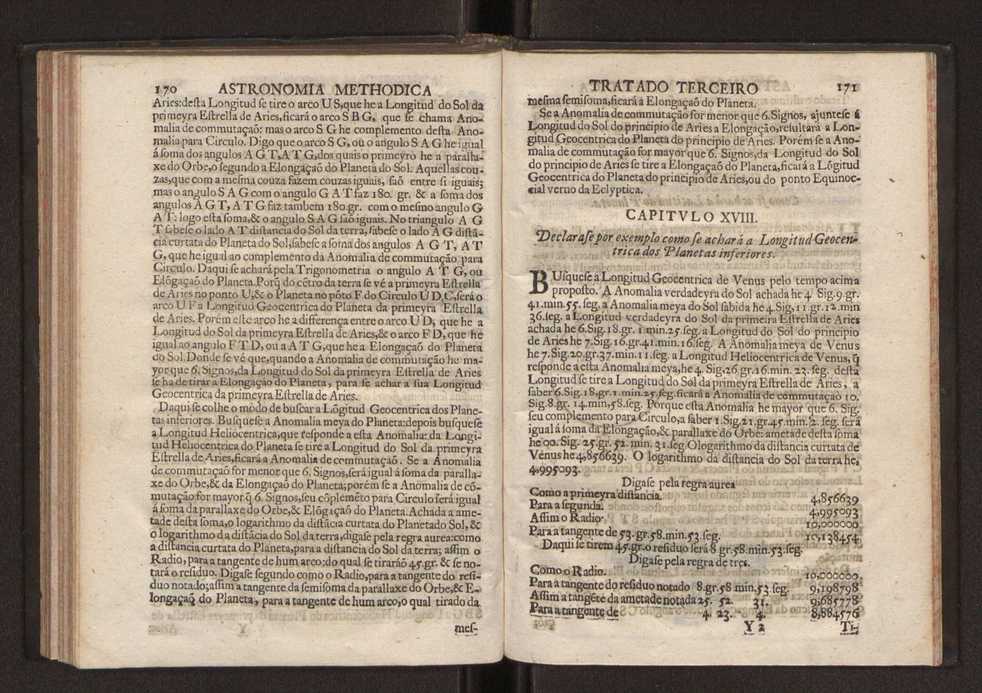 170 ASTRONOMIA METHODICA
Aries: desta Longitud se tire o arco U S, que he a Longitud do Sol da
primeyra Estrella de Aries, ficará o arco S B G, que se chama Ano-
malia de commutação: mas o arco S G he complemento desta Ano-
malia para Circulo. Digo que o arco S G, ou o angulo S A G he igual
á soma dos angulos A G T, A T G, dos quais o primeyro he a paralla-
xe do Orbe, o segundo a Elongação do Planeta do Sol. Aquellas cou-
zas, que com a mesma couza fazem couzas iguais, saõ entre si iguais;
mas o angulo S A G com o angulo G A T faz 180. gr. & a soma dos
angulos A G T, A T G faz tambem 180. gr. com o mesmo angulo G
A T: logo esta soma, & o angulo S A G saõ iguais. No triangulo A G
T sabese o lado A T distancia do Sol da terra, sabese o lado A G distã-
cia curtata do Planeta do Sol, sabese a soma dos angulos A G T, A T
G, que he igual ao complemento da Anomalia de commutação para
Circulo. Daqui se achará pela Trigonometria o angulo A T G, ou
Elõgaçaõ do Planeta. Porq̃ do cẽtro da terra se vé a primeyra Estrella
de Aries no ponto U, & o Planeta no põto F do Circulo U D C, será o
arco U F a Longitud Geocentrica do Planeta da primeyra Estrella
de Aries. Porém este arco he a differença entre o arco U D, que he a
Longitud do Sol da primeyra Estrella de Aries, & o arco F D, que he
igual ao angulo F T D, ou a A T G, que he a Elongaçaõ do Planeta
do Sol. Donde se vé que, quando a Anomalia de commutação he ma-
yor que 6. Signos, da Longitud do Sol da primeyra Estrella de Aries
se ha de tirar a Elongação do Planeta, para se achar a sua Longitud
Geocentrica da primeyra Estrella de Aries.
Daqui se colhe o modo de buscar a Lõgitud Geocentrica dos Plane-
tas inferiores. Busquese a Anomalia meya do Planeta: depois busquese
a Longitud Heliocentrica, que responde a esta Anomalia: da Longi-
tud Heliocentrica do Planeta se tire a Longitud do Sol da primeyra
Estrella de Aries, ficará a Anomalia de commutação. Se a Anomalia
de commutação for menor que 6. Signos, será igual á soma da paralla-
xe do Orbe, & da Elongação do Planeta; porém se a Anomalia de cõ-
mutação for mayor q̃ 6. Signos, seu cõplemẽto para Circulo será igual
á soma da parallaxe do Orbe, & Elõgiçaõ do Planeta. Achada a ame-
tade desta soma, o logarithmo da distãcia curtata do Planeta do Sol, &
o logarithmo da distãcia do Sol da terra, digase pela regra aurea: como
a distancia curtata do Planeta, para a distancia do Sol da terra; assim o
Radio, para a tangente de hum arco; do qual se tirarãõ 45. gr. & se no-
tará o residuo. Digase segundo como o Radio, para a tangente do resi-
duo notado; assim a tangente da semisoma da parallaxe do Orbe, & E-
longação do Planeta, para a tangente de hum arco, o qual tirado da
Y mes-
TRATADO TERCEIRO 171
mesma semisoma, ficará a Elongação do Planeta.
Se a Anomalia de commutação for menor que 6. Signos, ajuntese á
Longitud do Sol do principio de Aries a Elongação, resultará a Lon-
gitud Geocentrica do Planeta do principio de Aries. Porém se a Ano-
malia de commutação for mayor que 6. Signos, da Longitud do Sol
do principio de Aries se tire a Elongação do Planeta, ficará a Lõgitud
Geocentrica do Planeta do principio de Aries, ou do ponto Equinoc-
cial verno da Eclyptica.
CAPITVLO XVIII.
Declarase por exemplo como se achará a Longitud Geocen-
trica dos Planetas inferiores.
BUsquese a Longitud Geocentrica de Venus pelo tempo acima
proposto. A Anomalia verdadeyra do Sol achada he 4. Sig. 9. gr.
41. min. 55. seg. a Anomalia meya do Sol sabida he 4. Sig, 11. gr. 12. min
36. seg. a Longitud verdadeyra do Sol da primeira Estrella de Aries
achada he 6. Sig. 18. gr. 1. min. 25. seg. a Longitud do Sol do principio
de Aries he 7. Sig. 16. gr. 41. min. 16. seg. A Anomalia meya de Venus
he 7. Sig. 20. gr. 37. min. 11. seg. a Longitud Heliocentrica de Venus, q̃
responde a esta Anomalia meya, he 4. Sig. 26. gr. 16. min. 23. seg. desta
Longitud se tire a Longitud do Sol da primeyra Estrella de Aries, a
saber 6. Sig. 18. gr. 1. min. 25. seg. ficará a Anomalia de commutação 10.
Sig. 8. gr. 14. min, 58. seg. Porque esta Anomalia he mayor que 6. Sig.
seu complemento para Circulo, a saber 1. Sig. 21. gr. 45. min. 2. seg. será
igual á soma da Elongação, & parallaxe do Orbe: ametade desta soma
he 00. Sig. 25. gr. 52. min. 31. seg. O logarithmo da distancia curtata de
Venus he 4,856639. O logarithmo da distancia do Sol da terra he,
4,995093.
Digase pela regra aurea
Como a primeyra distancia. 4,856639
Para a segunda. 4,995093
Assim o Radio. 10,000000.
Para a tangente de 53. gr. 58. min. 53. seg. 10,138454
Daqui se tirem 45. gr. o residuo será 8 gr. 58. min. 53. seg.
Digase pela regra de tres.
Como o Radio. 10,000000,
Para a tangente do residuo notado 8. gr. 58 min. 53 seg. 9,198798
Assim a tangẽte da ametade notada 25. 52. 31. 9,685778
Para a tangente de 4. 23. 4. 8,884576
Y 2 Ti-